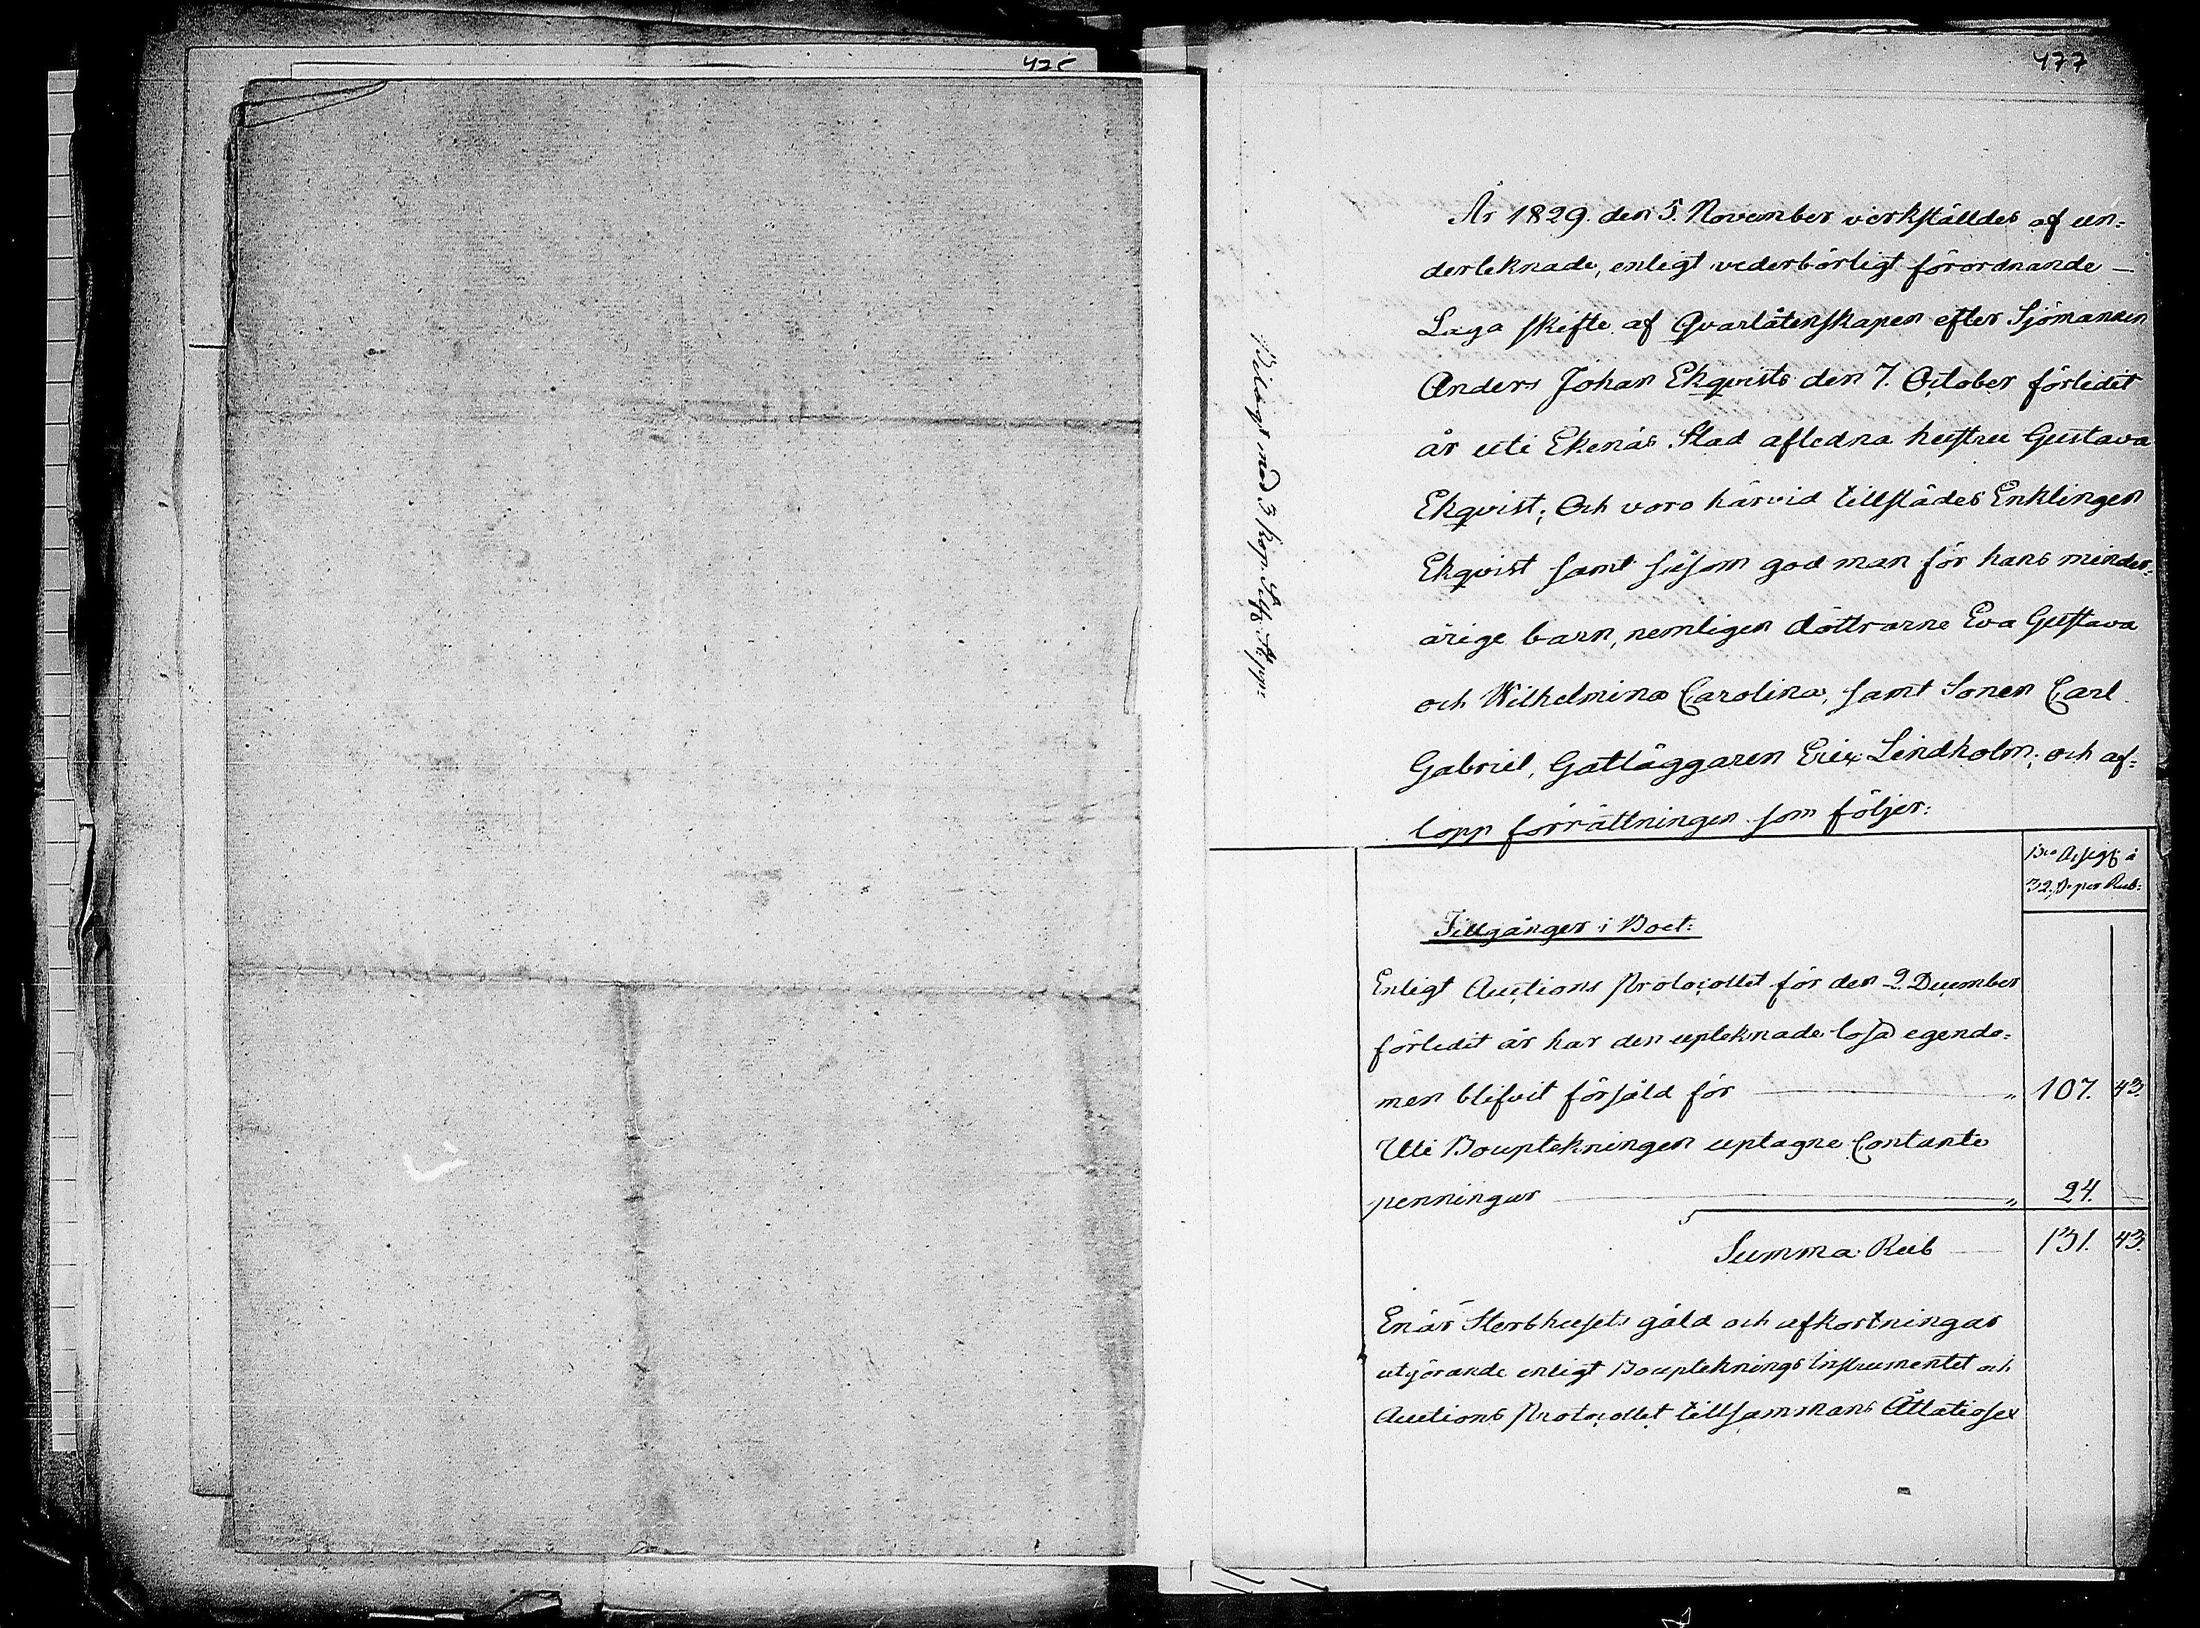 477
År 1829. den 5. November verkställdes af un-
derteknade, enligt vederbörligt förordnande —
Laga skifte af Qvarlåtenskapen efter Sjömannen
Anders Johan Ekqvists den 7. October förledit
år uti Ekenäs Stad afledna hustru Gustava
Ekqvist; Och voro härvid tillstädes Enklingen
Ekqvist samt såsom god man för hans minder-
årige barn, nemligen döttrarne Eva Gustava
och Wilhelmina Carolina, samt Sonen Carl
Gabriel, Gatläggaren Eric Lindholm; och af-
lopp förrättningen som följer:
Belagt med 3 kop. Silfr
Bco Assigr à
32. per Rub:
Tillgånger i Boet:
Enligt Auctions Protocollet för den 9 December
förledit år har den upteknade lösa egendo-
men blifvit försåld för — " 107. 43.
Uti Bouptekningen uptagne Contante
penningar — " 24. —
Summa Rub — 131. 43.
Enär Sterbhusets gäld och afkortningar
utgörande enligt Boupteknings Instrumentet och
Auctions Protocollet tillsammans Åttatiosex